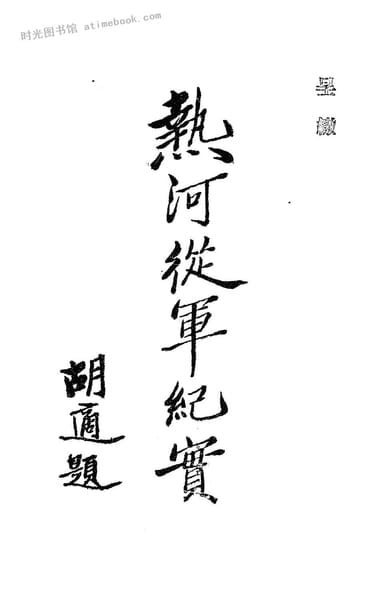 时光图书馆 atimebook.com
呈繳
熱河從軍紀實
胡適題